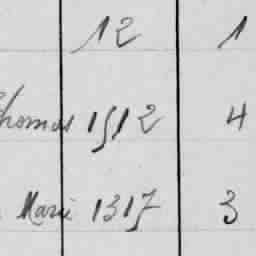 12 1
Thomas 1512 4
Marie 1317 3